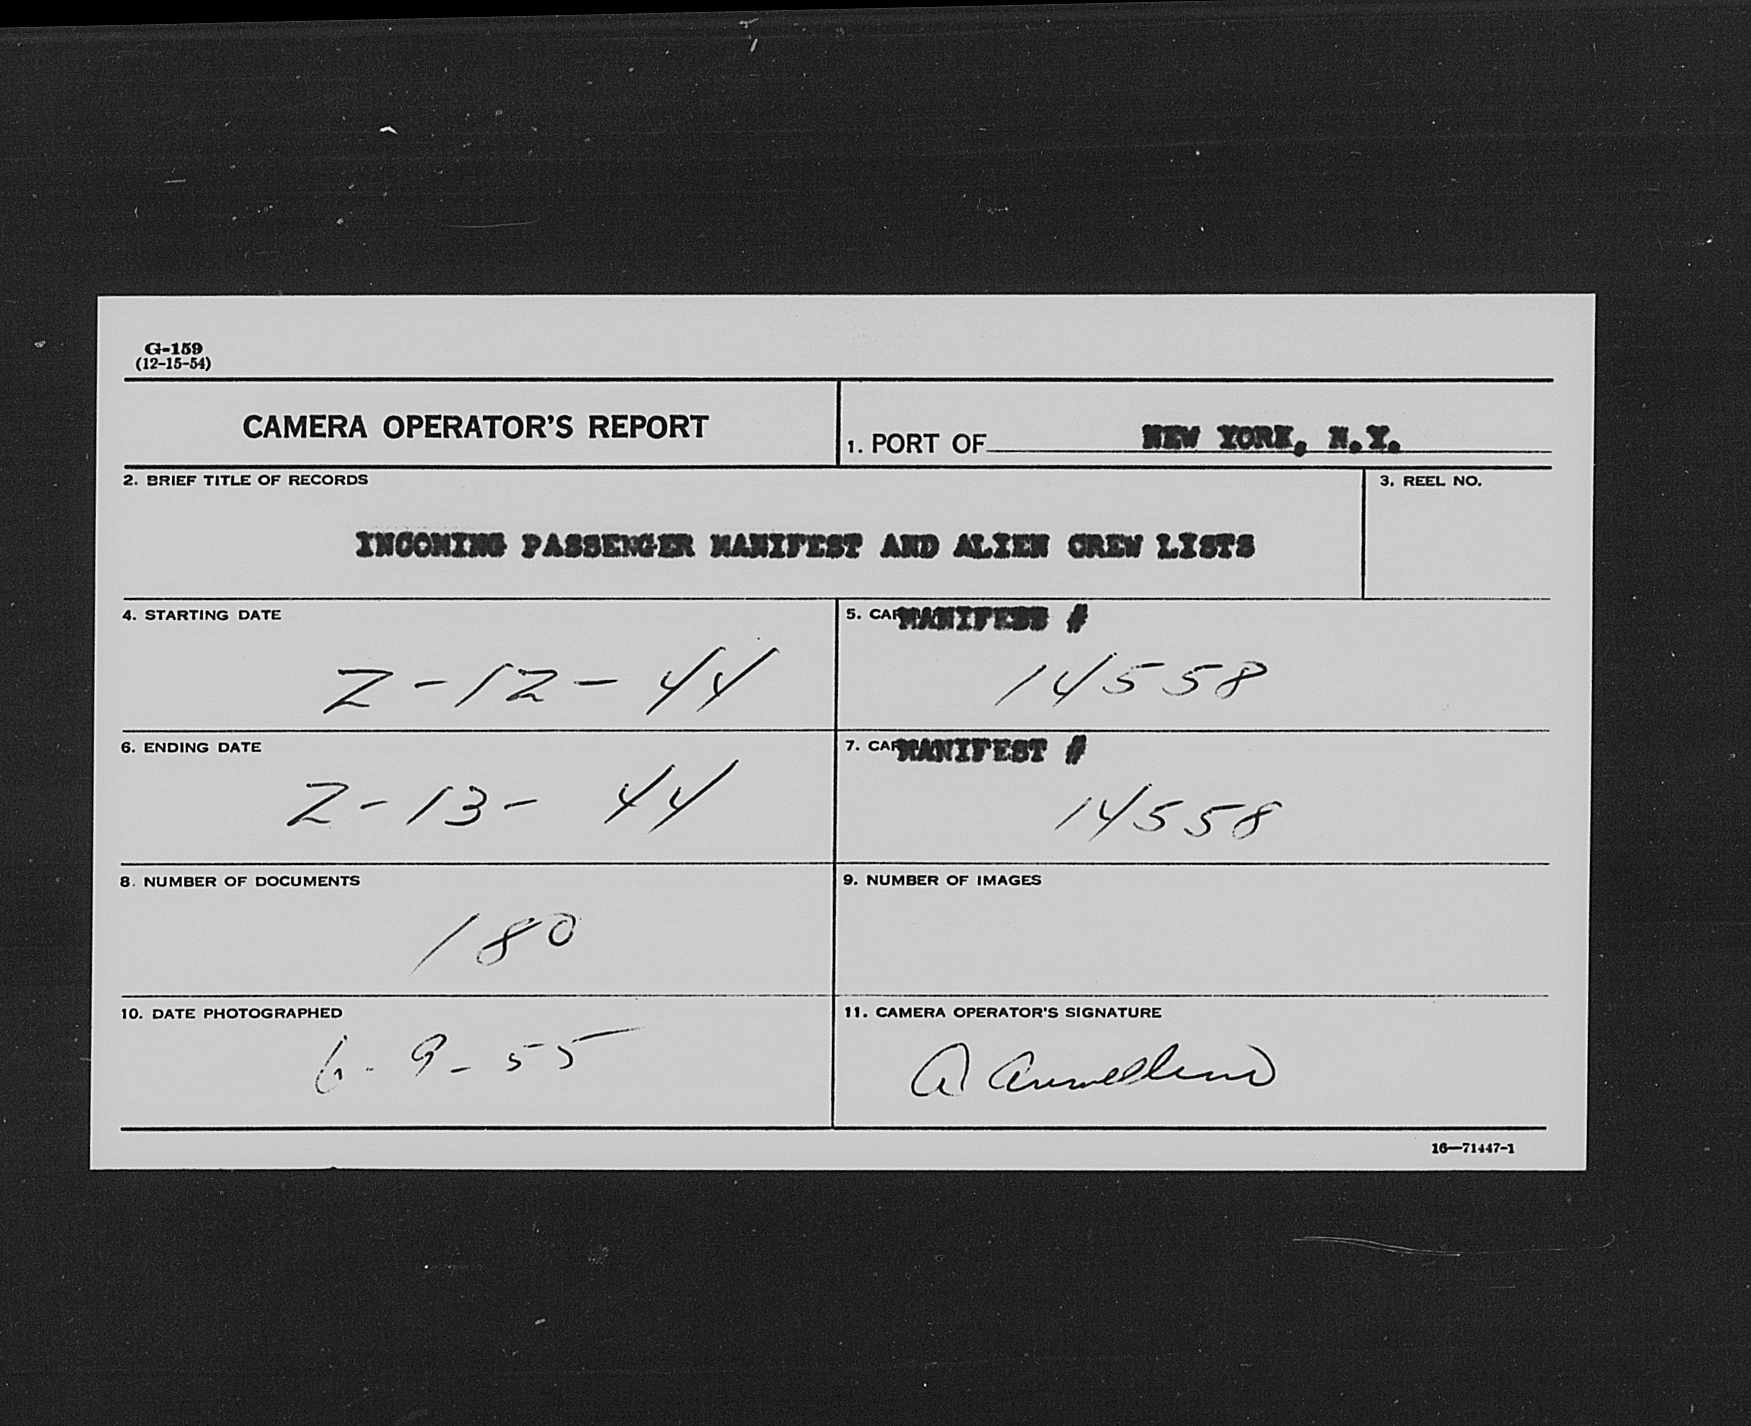 G-159
(12-15-54)
CAMERA OPERATOR'S REPORT
1. PORT OF NEW YORK, N.Y.
2. BRIEF TITLE OF RECORDS
3. REEL NO.
INCOMING PASSENGER MANIFEST AND ALIEN CREW LISTS
4. STARTING DATE
2-12-44
5. MANIFEST #
14558
6. ENDING DATE
2-13-44
7. MANIFEST #
14558
8. NUMBER OF DOCUMENTS
180
9. NUMBER OF IMAGES
10. DATE PHOTOGRAPHED
6-9-55
11. CAMERA OPERATOR'S SIGNATURE
A
16—71447-1